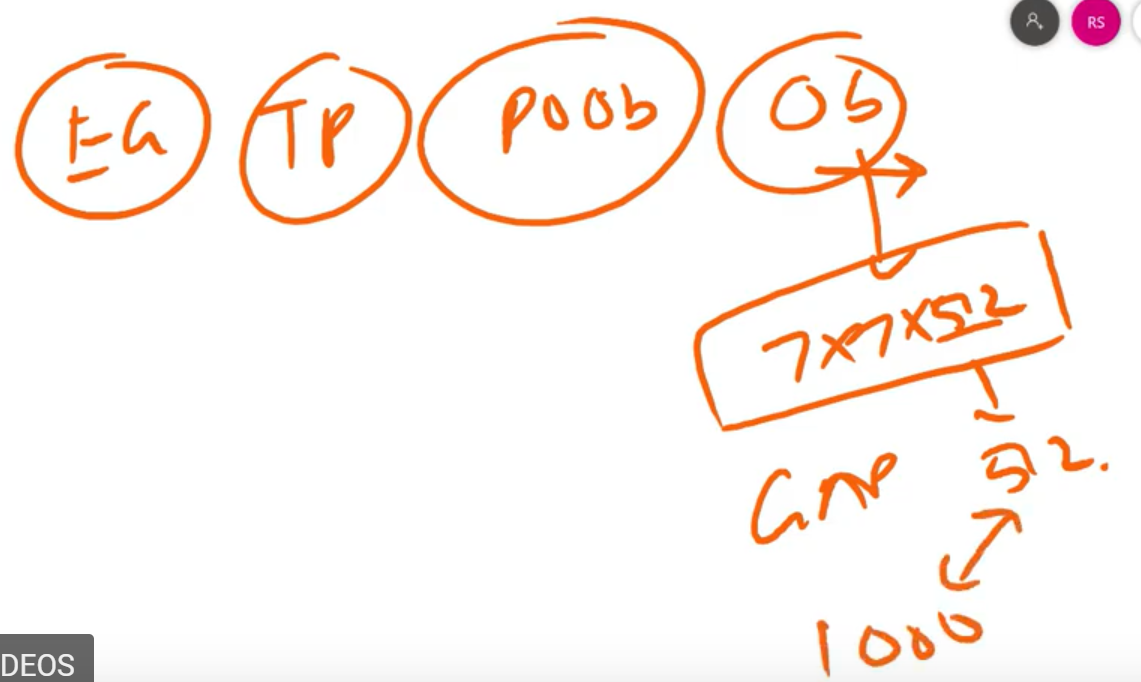 RS
E-G TP POOb Ob
7x7x512
GAP 512.
1000
DEOS